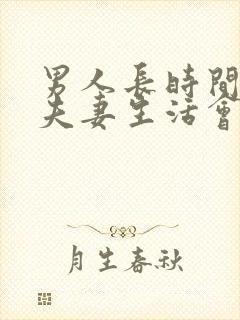 男人長時間
夫妻生活會
月生春秋